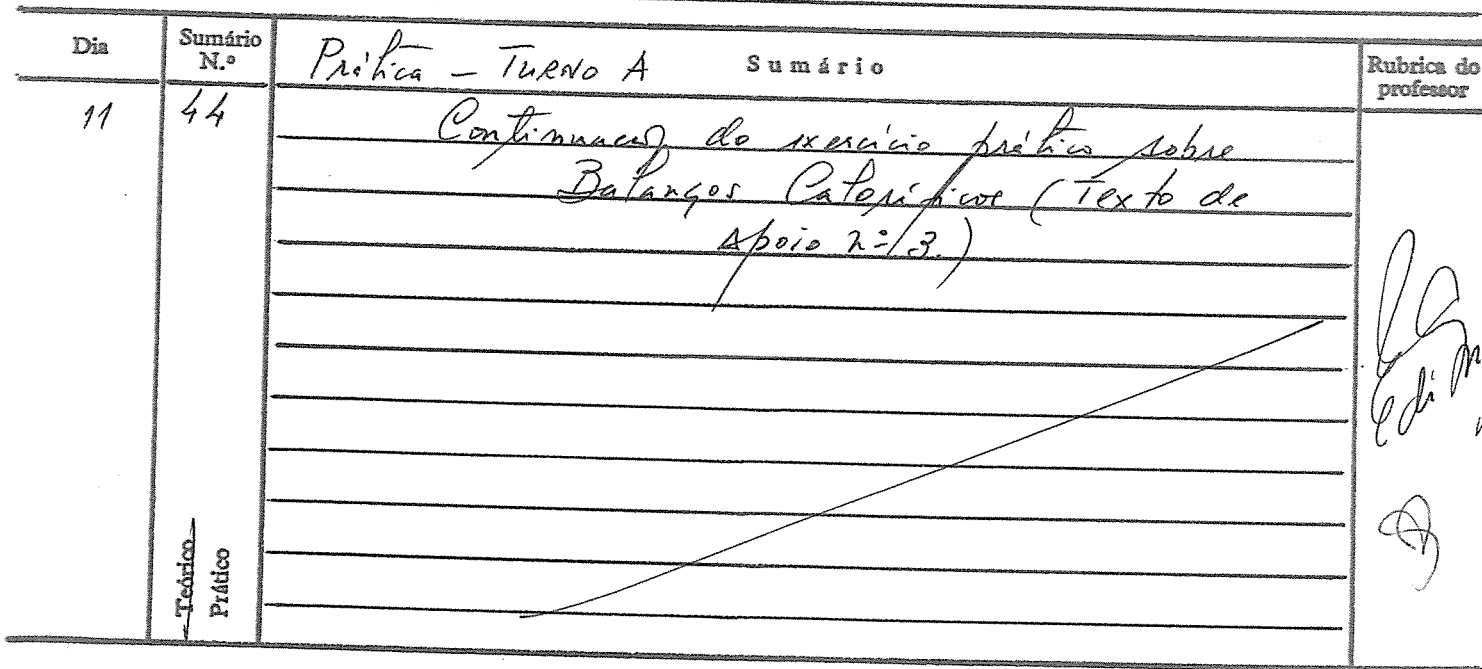 Dia
Sumário N.º
Prática - TURNO A Sumário
Rubrica do professor
11 44 Continuação do exercício prático sobre
Balanços Caloríficos (Texto de
Apoio nº 3.)
Teórico
Prático